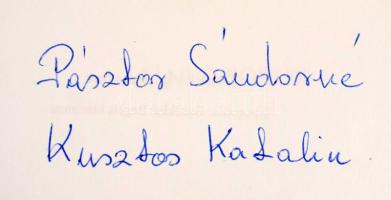 Pásztor Sándorné
Kusztos Katalin